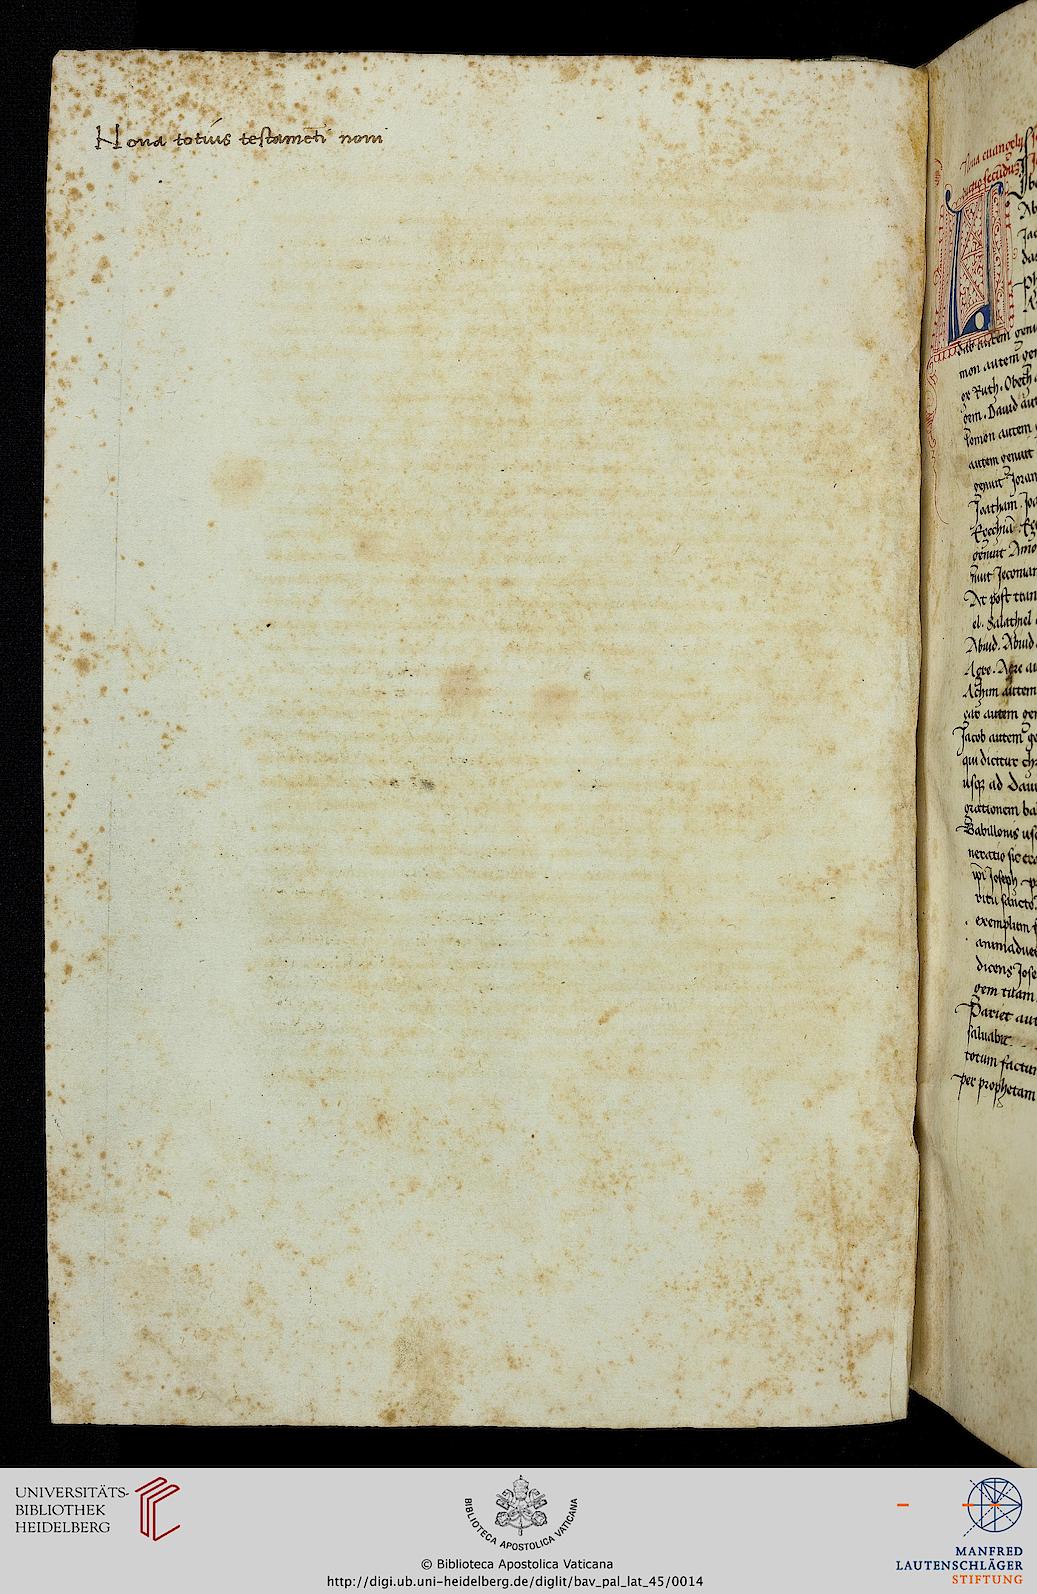 Nova totius testamēti novi
Nova euangelij
ductio secūdus
das autem genu
mon autem gen
ex Ruth. Obeth
gem. David aut
lomon autem
autem genuit
genuit Joram
Joatham. Joa
Ezechiā. Ez
genuit Amo
nuit Jeconiam
At post tran
el. Salathiel
Abiud. Abiud
Azor. Azor au
Achim autem
zar autem gen
Jacob autem ge
qui dicitur chr
usq ad Davi
grationem ba
Babillonis usq
neratio sic era
ipi Joseph
ritu sancto.
exemplum
animadver
dicens Jose
gem tuam
Pariet aut
salvabit
totum factum
per prophetam
UNIVERSITÄTS-
BIBLIOTHEK
HEIDELBERG
BIBLIOTECA APOSTOLICA VATICANA
© Biblioteca Apostolica Vaticana
http://digi.ub.uni-heidelberg.de/diglit/bav_pal_lat_45/0014
MANFRED
LAUTENSCHLÄGER
STIFTUNG